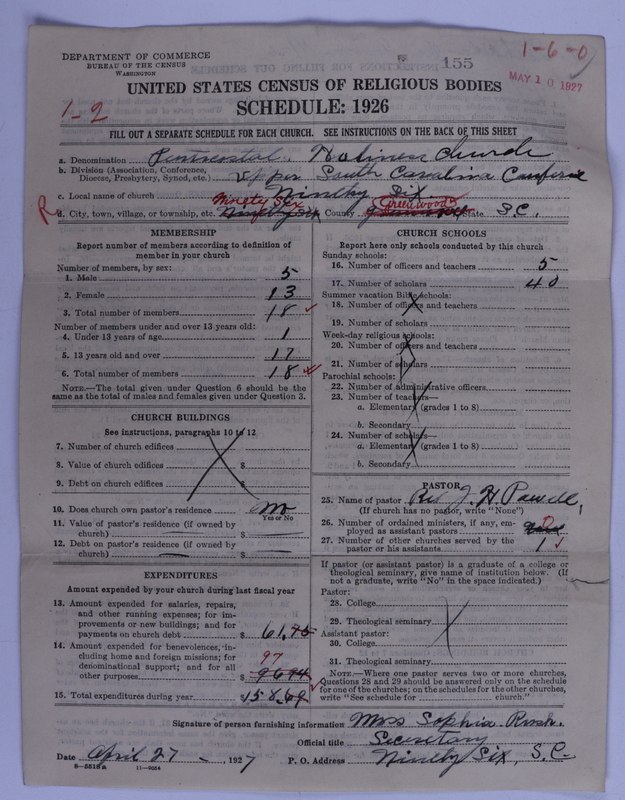 DEPARTMENT OF COMMERCE
BUREAU OF THE CENSUS
WASHINGTON
155
1-6-0
MAY 10 1927
UNITED STATES CENSUS OF RELIGIOUS BODIES
1-2
SCHEDULE: 1926
FILL OUT A SEPARATE SCHEDULE FOR EACH CHURCH. SEE INSTRUCTIONS ON THE BACK OF THIS SHEET
a. Denomination Pentecostal Holiness Church
b. Division (Association, Conference, Diocese, Presbytery, Synod, etc.) Upper South Carolina
c. Local name of church Ninety Six
R d. City, town, village, or township, etc. Ninety Six County Greenwood State S.C.
MEMBERSHIP
Report number of members according to definition of
member in your church
Number of members, by sex:
1. Male 5
2. Female 13
3. Total number of members 18
Number of members under and over 13 years old:
4. Under 13 years of age 1
5. 13 years old and over 17
6. Total number of members 18
NOTE.—The total given under Question 6 should be
same as the total of males and females given under Question 3.
CHURCH BUILDINGS
See instructions, paragraphs 10 to 12
7. Number of church edifices
8. Value of church edifices $
9. Debt on church edifices $
10. Does church own pastor's residence No
Yes or No
11. Value of pastor's residence (if owned by
church) $
12. Debt on pastor's residence (if owned by
church) $
EXPENDITURES
Amount expended by your church during last fiscal year
13. Amount expended for salaries, repairs,
and other running expenses; for im-
provements or new buildings; and for
payments on church debt $ 61.75
14. Amount expended for benevolences, in-
cluding home and foreign missions; for
denominational support; and for all
other purposes $ 97
96 94
15. Total expenditures during year $ 158.69
CHURCH SCHOOLS
Report here only schools conducted by this church
Sunday schools:
16. Number of officers and teachers 5
17. Number of scholars 40
Summer vacation Bible schools:
18. Number of officers and teachers
19. Number of scholars
Week-day religious schools:
20. Number of officers and teachers
21. Number of scholars
Parochial schools:
22. Number of administrative officers
23. Number of teachers—
a. Elementary (grades 1 to 8)
b. Secondary
24. Number of scholars—
a. Elementary (grades 1 to 8)
b. Secondary
PASTOR
25. Name of pastor Rev J. H. Powell,
(If church has no pastor, write "None")
26. Number of ordained ministers, if any, em-
ployed as assistant pastors 0
27. Number of other churches served by the
pastor or his assistants 1
If pastor (or assistant pastor) is a graduate of a college or
theological seminary, give name of institution below. (If
not a graduate, write "No" in the space indicated.)
Pastor:
28. College
29. Theological seminary
Assistant pastor:
30. College
31. Theological seminary
NOTE.—Where one pastor serves two or more churches,
Questions 28 and 29 should be answered only on the schedule
for one of the churches; on the schedules for the other churches,
write "See schedule for church."
Signature of person furnishing information Miss Sophia Rush.
Official title Secretary
Date April 27 - , 1927 P. O. Address Ninety Six, S.C.
8-5518a 11-9064